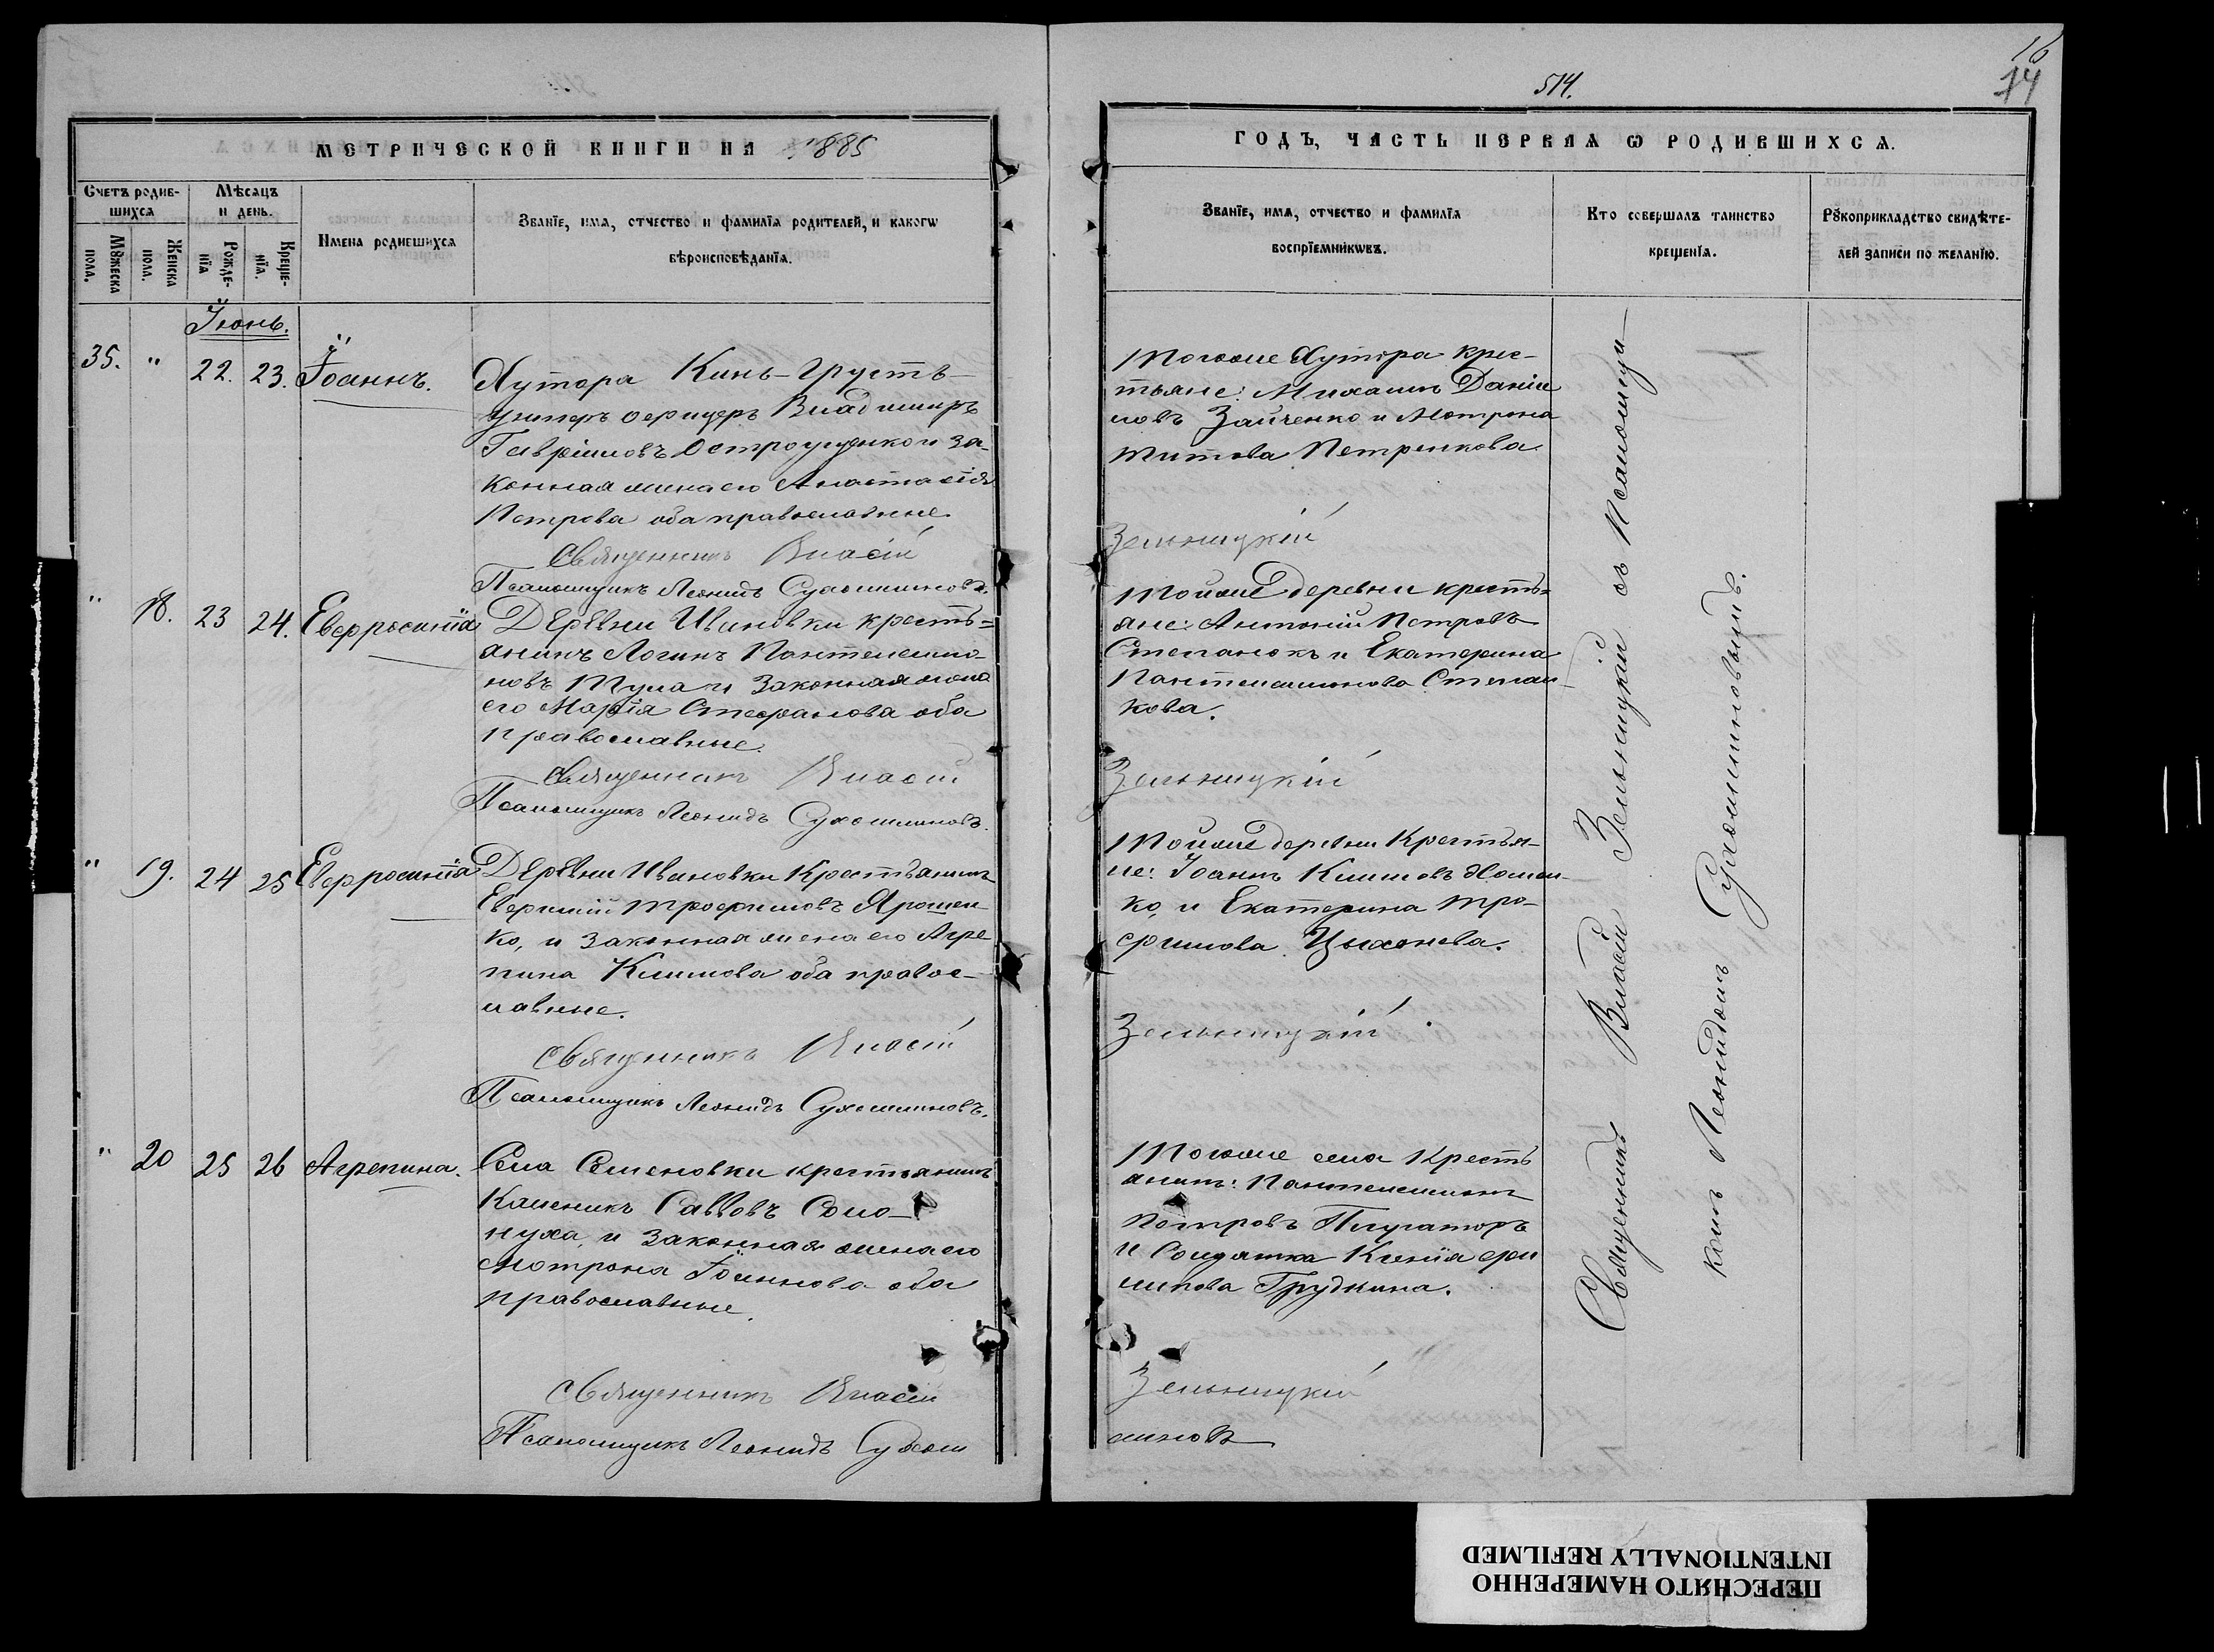 514.
16
14
МЕТРИЧЕСКОЙ КНИГИ НА 1885
Счетъ родив-
шихся
Мѣсяцъ
и день.
Мꙋжеска
пола.
Женска
пола.
Рожде-
нїа
Креще-
нїа.
Имена родившихся
Званїе, имя, отчество и фамилїя родителей, и какогѡ
вѣроисповѣданїя.
Іюнь.
35. " 22. 23. Іоаннъ.
Хутора Кинь-Грусть
унтеръ офицеръ Владимиръ
Гавріиловъ Остроущенко и за-
конная жена его Анастасія
Петрова оба православные.
Священникъ Власій
Псаломщикъ Леонидъ Сухомлиновъ.
" 18. 23 24. Евфросинія
Деревни Ивановки кресть=
янинъ Логинъ Пантелеимо-
новъ Тула и законная жена
его Марія Стефанова оба
православные.
Священникъ Власій
Псаломщикъ Леонидъ Сухомлиновъ.
" 19. 24 25 Евфросинія
Деревни Ивановки Крестьянинъ
Евфимій Трофимовъ Ярошен-
ко, и законная жена его Агре
пина Климова оба правос-
лавные.
Священникъ Власій
Псаломщикъ Леонидъ Сухомлиновъ.
" 20 25 26 Агрепина.
Села Семеновки крестьянинъ
Калиникъ Савовъ Соло-
нуха, и законная жена его
Мотрона Іоаннова оба
православные.
Священникъ Власій
Псаломщикъ Леонидъ Сухом
ГОДЪ, ЧАСТЬ ПЕРВАЯ Ѡ РОДИВШИХСЯ.
Званїе, имя, отчество и фамилїя
воспрїемникѡвъ.
Кто совершалъ таинство
крещенїя.
Рꙋкоприкладство свидѣте-
лей записи по желанїю.
Тогоже Хутора крес-
тьяне: Михаилъ Даніи
ловъ Зайченко и Мотрона
Титова Петренкова.
Зельницкій
Тойже деревни кресть=
яне: Антоній Петровъ
Степанокъ и Екатерина
Пантелеимонова Степан-
кова.
Зельницкій
Тойже деревни Крестья-
не: Іоаннъ Климовъ Хомен-
ко, и Екатерина Тро-
фимова Цыхонева.
Зельницкій
Тогоже села Кресть
янинъ: Пантелеимонъ
Петровъ Плугаторъ
и Солдатка Ксенія Фи
липова Грудкина.
Зельницкій
линовъ
Священникъ Власій Зельницкій съ Псаломщи-
комъ Леонидомъ Сухомлиновымъ.
ПЕРЕСНЯТО НАМЕРЕННО
INTENTIONALLY REFILMED